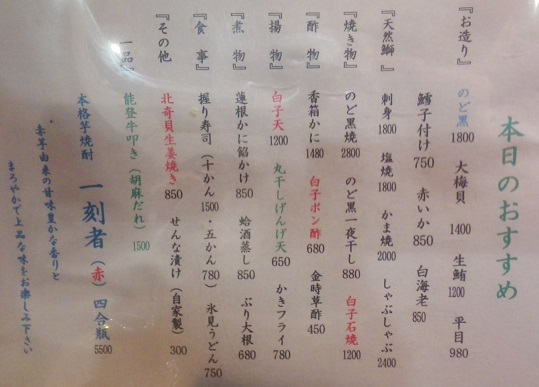 本日のおすすめ
『お造り』 のど黒 1800 大梅貝 1400 生鮪 1200 平目 980
鱈子付け 750 赤いか 850 白海老 850
『天然鰤』 刺身 1800 塩焼 1800 かま焼 2000 しゃぶしゃぶ 2400
『焼き物』 のど黒焼 2800 のど黒一夜干し 880 白子石焼 1200
『酢物』 香箱かに 1480 白子ポン酢 680 金時草酢 450
『揚物』 白子天 1200 丸干しげんげ天 650 かきフライ 780
『煮物』 蓮根かに餡かけ 850 蛤酒蒸し 850 ぶり大根 680
『食事』 握り寿司(十かん 1500・五かん 780) 氷見うどん 750
『その他』 北寄貝生姜焼き 850 せんな漬け(自家製) 300
一品 能登牛叩き(胡麻だれ) 1500
本格芋焼酎 一刻者(赤) 四合瓶 5500
赤芋由来の甘味豊かな香りと
まろやかで上品な味をお楽しみ下さい